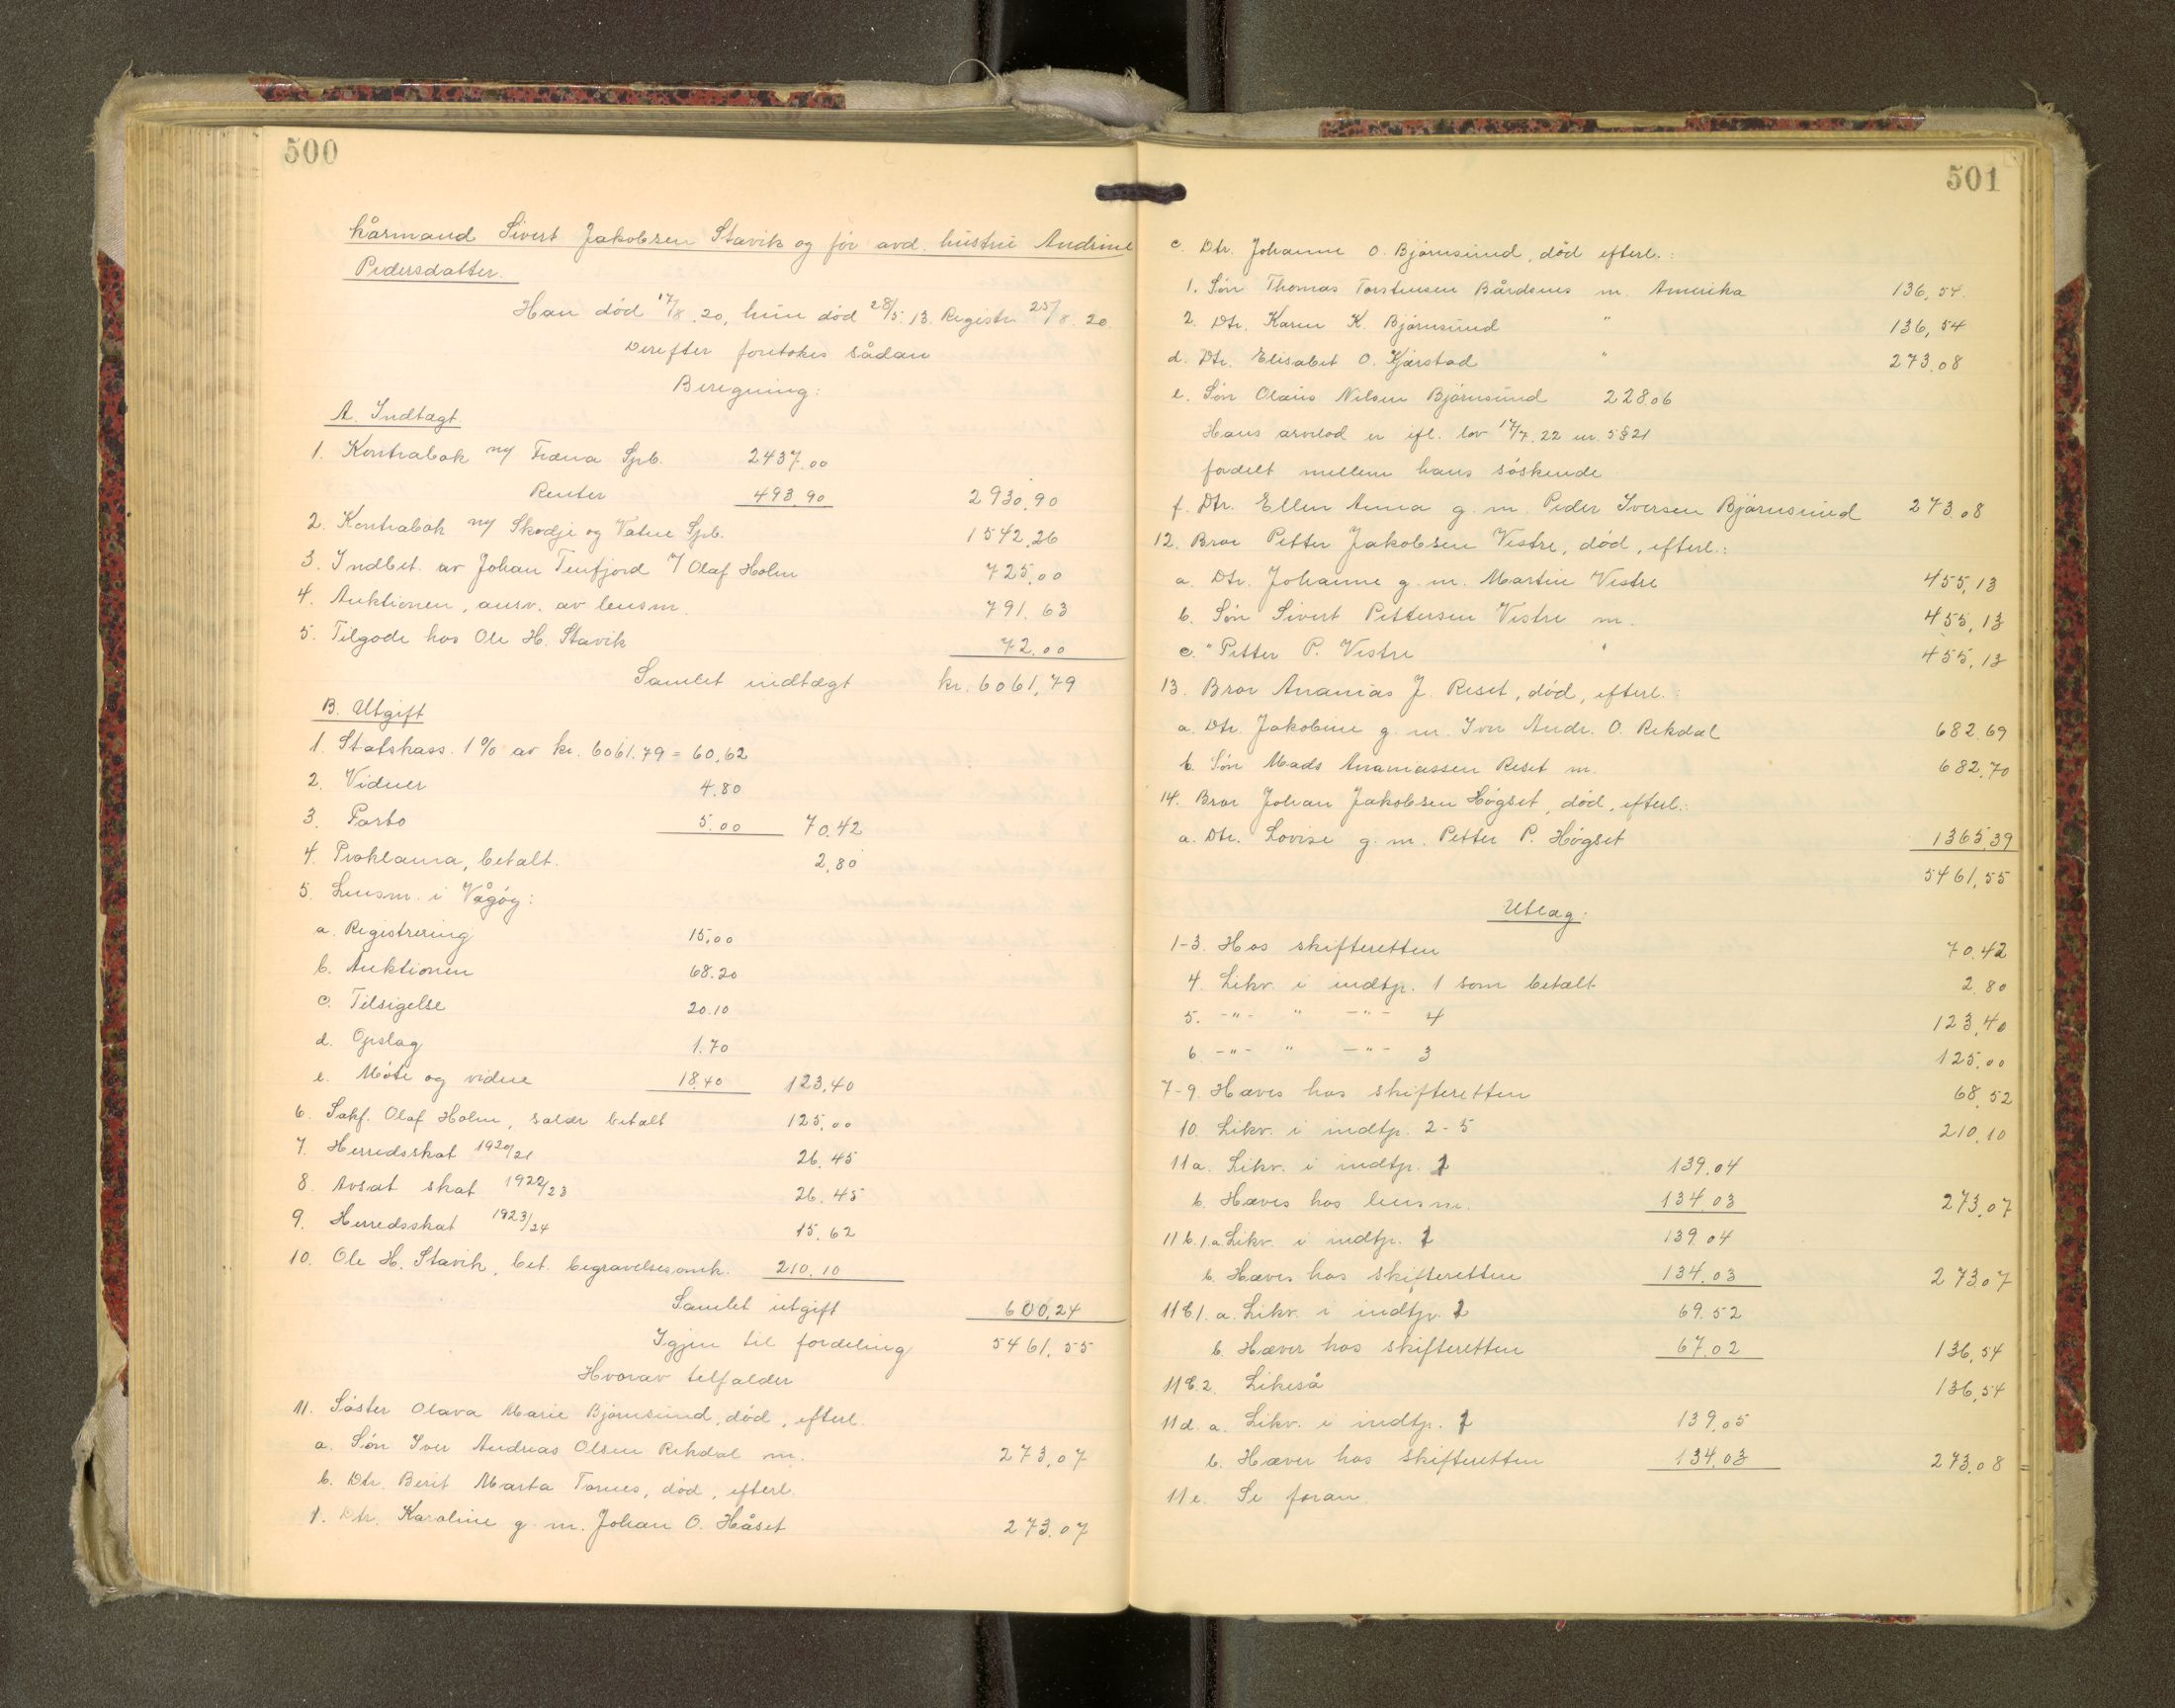 500
kårmand Sivert Jakobsen Stavik og før avd. hustru Andrine
Pedersdatter.
Han død 17/8.20, hun død 28/5.13. Registr. 25/8.20
Derefter foretokes sådan
Beregning:
A. Indtægt
1. Kontrabok m/ Fræna Spb. 2437.00
Renter 493.90 2930.90
2. Kontrabok m/ Skodje og Vatne Spb. 1542.26
3. Indbet. av Johan Tenfjord v/ Olaf Holm 725.00
4. Auktionen, ansv. av lensm. 791.63
5. Tilgode hos Ole H. Stavik 72.00
Samlet indtægt kr. 6061,79
B. Utgift
1. Statskass. 1% av kr. 6061.79 = 60,62
2. Vidner 4.80
3. Porto 5.00 70.42
4. Proklama, betalt. 2,80
5. Lensm. i Vågøy:
a. Registrering 15,00
b. Auktionen 68.20
c. Tilsigelse 20.10
d. Opslag 1.70
e. Møte og vidne 18.40 123,40
6. Sakf. Olaf Holm, salær betalt 125,00
7. Herredsskat 1920/21 26.45
8. Avsat skat 1922/23 26.45
9. Herredsskat 1923/24 15.62
10. Ole H. Stavik, bet. begravelsesomk. 210.10
Samlet utgift 600,24
Igjen til fordeling 5461.55
Hvorav tilfalder
11. Søster Olava Marie Bjørnsund, død, efterl.
a. Søn Iver Andreas Olsen Rekdal m. 273,07
b. Dtr. Berit Marta Tornes, død, efterl.
1. Dtr. Karoline g. m. Johan O. Håset 273.07
501
c. Dtr. Johanne O. Bjørnsund, død efterl.:
1. Søn Thomas Torstensen Bårdsnes m. Amerika 136,54.
2. Dtr. Karen K. Bjørnsund " 136,54
d. Dtr. Elisabet O. Kjørstad " 273.08
e. Søn Olaus Nilsen Bjørnsund 228.06
Hans arvelod er efl. lov 17/7.22 nr. 5 § 21
fordelt mellem hans søskende
f. Dtr. Ellen Anna g. m. Peder Iversen Bjørnsund 273.08
12. Bror Petter Jakobsen Vestre, død, efterl.:
a. Dtr. Johanne g. m. Martin Vestre 455,13
b. Søn Sivert Pettersen Vestre m. 455,13
c. " Petter P. Vestre " 455,13
13. Bror Ananias J. Reset, død, efterl.:
a. Dtr. Jakobine g. m. Iver Andr. O. Rekdal 682.69
b. Søn Mads Ananiassen Reset m. 682,70
14. Bror Johan Jakobsen Høgset, død, efterl.:
a. Dtr. Lovise g. m. Petter P. Høgset 1365,39
5461,55
Utlæg:
1-3. Hos skifteretten 70.42
4. Likv. i indtp. 1 som betalt 2.80
5. -"- " -"- 4 123,40
6 -"- " -"- 3 125.00
7-9. Hæves hos skifteretten 68,52
10. Likv. i indtp. 2-5 210.10
11a. Likv. i indtp. 1 139.04
b. Hæves hos lensm. 134.03 273.07
11b.1.a. Likv. i indtp. 1 139.04
b. Hæves hos skifteretten 134.03 273.07
11c1. a. Likv. i indtp. 1 69.52
b. Hæver hos skifteretten 67.02 136,54
11c.2. Likeså 136,54
11d. a. Likv. i indtp. 1 139.05
b. Hæver hos skifteretten 134.03 273.08
11e. Se foran.